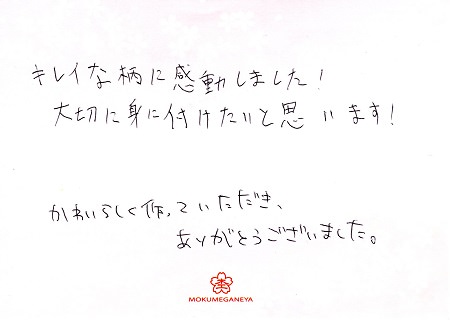 キレイな柄に感動しました!
大切に身に付けたいと思います!
かわいらしく作っていただき、
ありがとうございました。
MOKUMEGANEYA